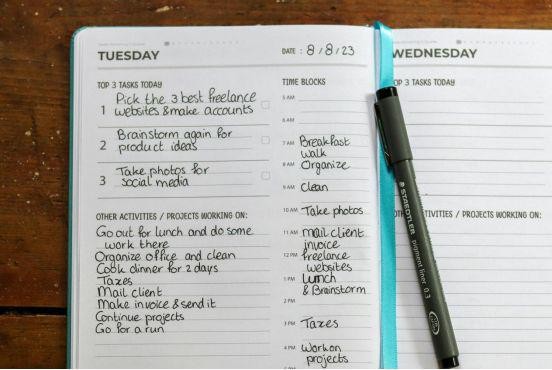 TUESDAY
DATE: 8/8/23
TOP 3 TASKS TODAY
1 Pick the 3 best freelance
websites & make accounts
2 Brainstorm again for
product ideas
3 Take photos for
social media
OTHER ACTIVITIES / PROJECTS WORKING ON:
Go out for lunch and do some
work there
Organize office and clean
Cook dinner for 2 days
Taxes
Mail client
Make invoice & send it
Continue projects
Go for a run
TIME BLOCKS
5 AM
6 AM
7 AM Breakfast
walk
8 AM Organize
9 AM Clean
10 AM Take photos
11 AM Mail client
invoice
12 PM freelance
websites
1 PM Lunch
& Brainstorm
2 PM
3 PM Taxes
4 PM Work on
projects
WEDNESDAY
TOP 3 TASKS TODAY
ACTIVITIES / PROJECTS WORKING ON:
STAEDTLER
pigment liner 0.3